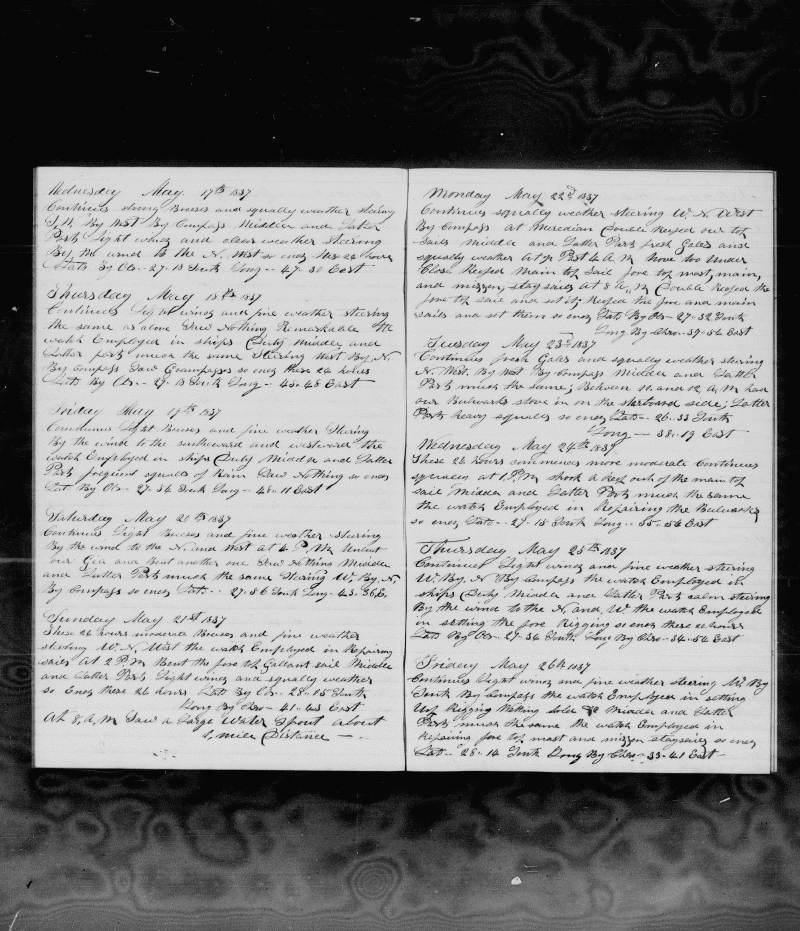 Wednesday May 17th 1837
Continues strong Breeses and squally weather stering
S, W. By West By Compass Middle and Latter
Parts Light winds and clear weather Steering
By the wind to the N. West so ends these 24 hours
Latt By Obs -- 27-13 South Long -- 47-30 East
Thursday May 18th 1837
Continues Light winds and fine weather steering
the same as above Saw Nothing Remarkable the
watch Employed in ships Duty Middle and
Latter parts much the same Stering West By N.
By Compass Saw Grampuses so ends these 24 hours
Latt By Obs -- 27-13 South Long -- 45-48 East
Friday May 19th 1837
Comences Light Breses and fine weather Stering
By the wind to the southward and westward the
watch Employed in ships Duty Middle and Latter
Parts frequent squalls of Rain Saw Nothing so ends
Lat By Obs -- 27-36 South Long -- 45-11 East
Saturday May 20th 1837
Continues Light Breeses and fine weather steering
By the wind to the N. and West at 4 P.M Unbent
our and Bent another one Saw Nothing Middle
and Latter Parts much the same Stering W. By. N.
By Compass so ends Latt -- 27-56 South Long - 43-36 E.
Sunday May 21st 1837
These 24 hours moderate Breeses and fine weather
steering W. N. West the watch Employed in Repairing
sails at 2 P.M Bent the fore top Gallant sail Middle
and Latter Parts Light winds and squally weather
so Ends these 24 hours Latt By Obs -- 28-05 South
Long By Chro -- 41-43 East
At 8, A, M Saw a Large Water Spout about
mile Distance --
Monday May 22nd 1837
Continues squally weather steering W. N. West
By Compass at Meredian Double Reefed our top
sails Middle and Latter Parts fresh Gales and
squally weather at ½ Past 4 A.M hove too Under
Close Reefed Main top sail fore top mast, main,
and mizzen, stay sails at 8 A, M Double Reefed the
fore top sail and set it; Reefed the fore and main
sails and set them so ends Latt By Obs -- 27-32 South
Long By Chro -- 39-56 East
Tuesday May 23rd 1837
Continues fresh Gales and squally weather steering
N. West. By West By Compass Middle and Latter
Parts much the same; Between 10, and 12 A, M had
our Bulwarks stove in on the starboard side; Latter
Parts heavy squalls so ends Latt -- 26-33 South
Long -- 38-19 East
Wednesday May 24th 1837
These 24 hours commences more moderate Continues
squally at 1 P.M shook a Reef out of the main top
sail Middle and Latter Parts much the same
the watch Employed in Repairing the Bulwarks
so ends Latt -- 27-15 South Long -- 35-56 East
Thursday May 25th 1837
Continues Light winds and fine weather steering
W. By. N By Compass the watch Employed in
ships Duty Middle and Latter Parts calm steering
By the wind to the N. and W the watch Employed
in setting the fore Rigging so ends these 24 hours
Latt By Obs - 27-36 South Long By Chro -- 34-56 East
Friday May 26th 1837
Continues Light winds and fine weather steering W. By
South By Compass the watch Employed in setting
Up Rigging Middle and Latter
Parts much the same the watch Employed in
Repairing fore top mast and mizzen staysails so ends
Lat -- 28-14 South Long By Chro -- 33-41 East